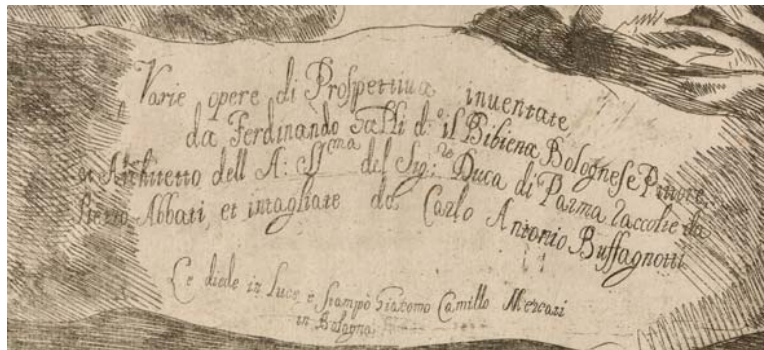 Varie opere di Prospettiua inuentate,
da Ferdinando Galli d:º il Bibiena Bolognese Pittore,
et Architetto dell A: Sſma del Sig:re Duca di Parma raccolte da
Pietro Abbati, et intagliate da Carlo Antonio Buffagnotti
Le diede in Luce, e stampò Giacomo Camillo Mercati
in Bologna